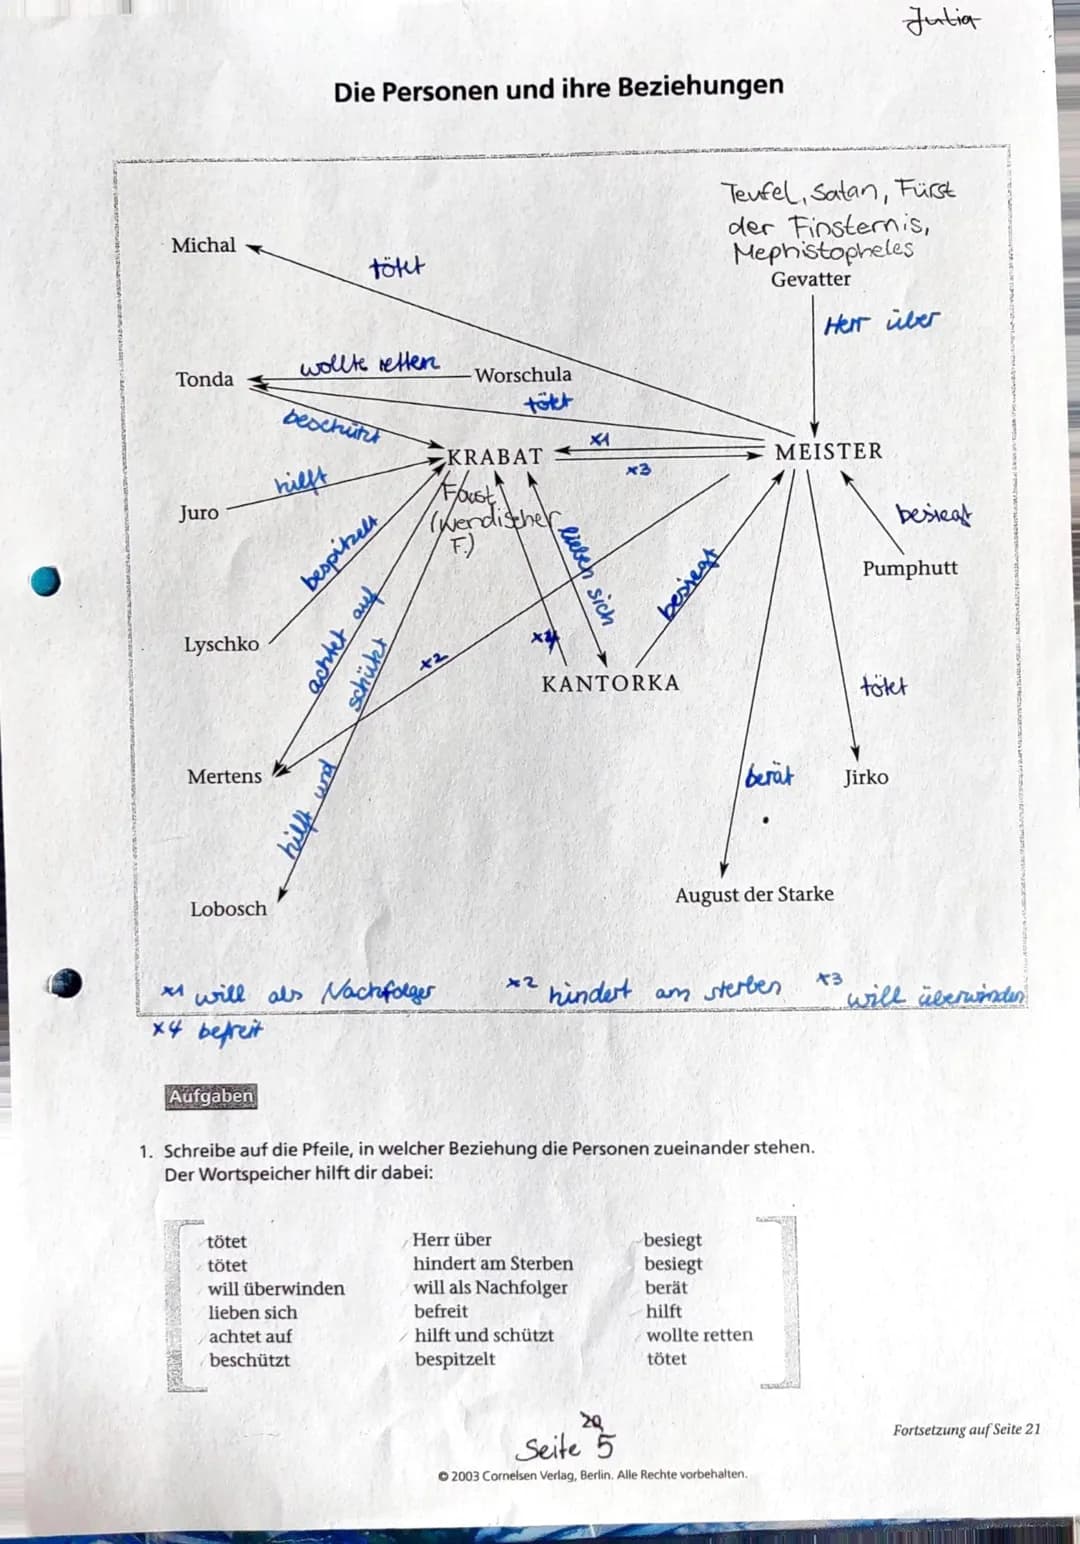 Julia
Die Personen und ihre Beziehungen
Teufel, Satan, Fürst
der Finsternis,
Mephistopheles
Gevatter
Michal
tötet
Herr über
wollte retten
Tonda
Worschula
tötet
beschützt
x1
KRABAT
MEISTER
x3
hilft
Faust
(Wendischer
F.)
Juro
besiegt
bespitzelt
lieben sich
Pumphutt
besiegt
achtet auf
Lyschko
x4
schützt
x2
KANTORKA
tötet
Mertens
hilft und
berät
Jirko
August der Starke
Lobosch
x1 will als Nachfolger
x2 hindert am sterben
x3 will überwinden
x4 befreit
Aufgaben
1. Schreibe auf die Pfeile, in welcher Beziehung die Personen zueinander stehen.
Der Wortspeicher hilft dir dabei:
tötet
tötet
will überwinden
lieben sich
achtet auf
beschützt
Herr über
hindert am Sterben
will als Nachfolger
befreit
hilft und schützt
bespitzelt
besiegt
besiegt
berät
hilft
wollte retten
tötet
Seite 5
Fortsetzung auf Seite 21
© 2003 Cornelsen Verlag, Berlin. Alle Rechte vorbehalten.